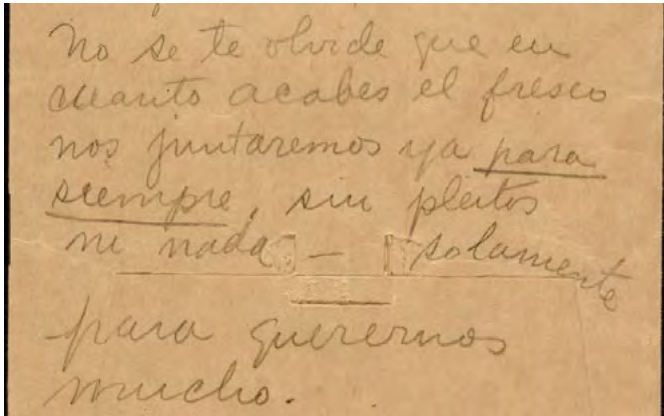 No se te olvide que en
cuanto acabes el fresco
nos juntaremos ya para
siempre, sin pleitos
ni nada — solamente
para querernos
mucho.